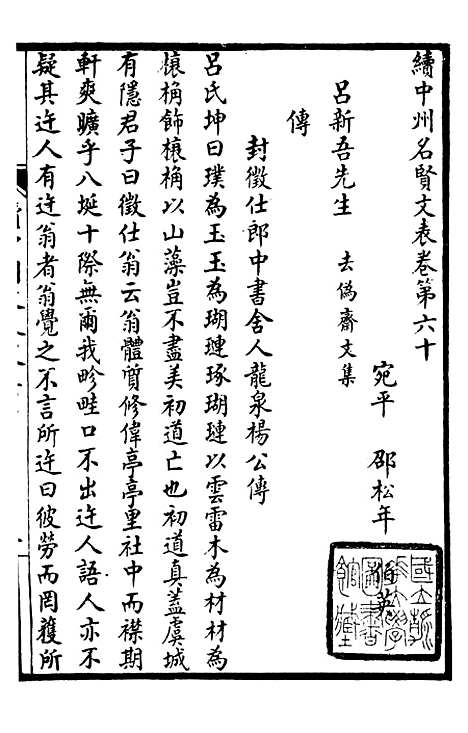 續中州名賢文表卷第六十
宛平 邵松年 
呂新吾先生 去偽齋文集
傳
封徵仕郎中書舍人龍泉楊公傳
呂氏坤曰璞為玉玉為瑚璉琢瑚璉以雲雷木為材材為
榱桷飾榱桷以山藻豈不盡美初道亡也初道真蓋虞城
有隱君子曰徵仕翁云翁體質修偉亭亭里社中而襟期
軒爽曠乎八埏十際無爾我畛畦口不出迕人語人亦不
疑其迕人有迕翁者翁覺之不言所迕曰彼勞而罔獲所